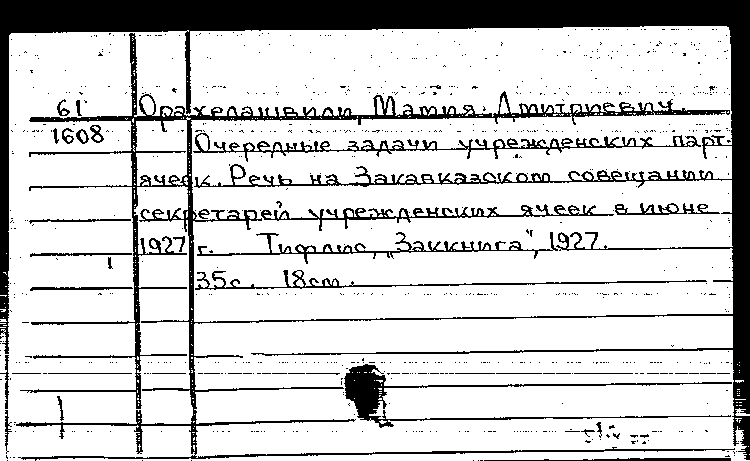 61 Орахелашвили, Мамия Дмитриевич.
1608 Очередные задачи учрежденских парт-
ячеек. Речь на Закавказском совещании
секретарей учрежденских ячеек в июне
1927 г. Тифлис, „Заккнига", 1927.
35с. 18см.